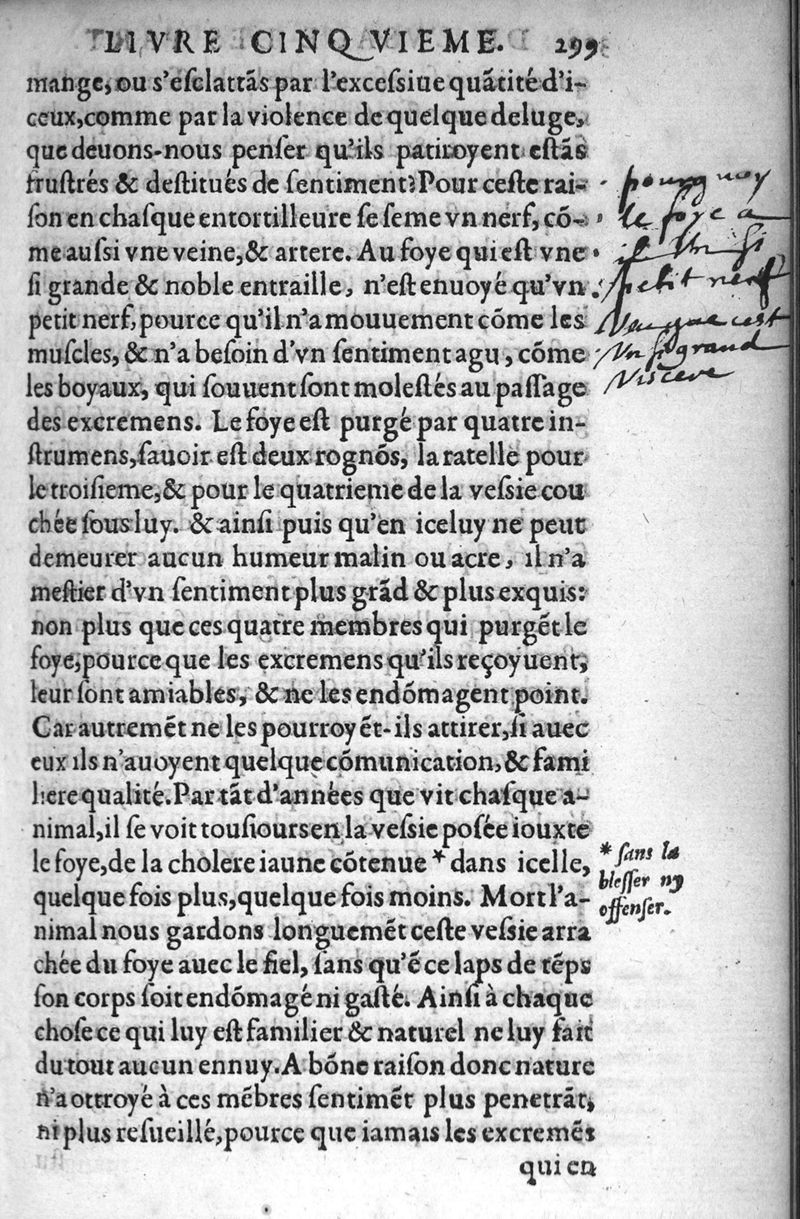 LIVRE CINQVIEME. 299
mange, ou s'eſclattãs par l'exceſsiue quãtité d'i-
ceux, comme par la violence de quelque deluge,
que deuons-nous penſer qu'ils patiroyent eſtãs
fruſtrés & deſtitués de ſentiment? Pour ceſte rai-
ſon en chaſque entortilleure ſe ſeme vn nerf, cõ-
me auſsi vne veine, & artere. Au foye qui eſt vne
ſi grande & noble entraille, n'eſt enuoyé qu'vn
petit nerf, pource qu'il n'a mouuement cõme les
muſcles, & n'a beſoin d'vn ſentiment agu, cõme
les boyaux, qui ſouuent ſont moleſtés au paſſage
des excremens. Le foye eſt purgé par quatre in-
ſtrumens, ſauoir eſt deux rognõs, la ratelle pour
le troiſieme, & pour le quatrieme de la veſsie cou
chée ſous luy. & ainſi puis qu'en iceluy ne peut
demeurer aucun humeur malin ou acre, il n'a
meſtier d'vn ſentiment plus grãd & plus exquis:
non plus que ces quatre membres qui purgẽt le
foye, pource que les excremens qu'ils reçoyuent,
leur ſont amiables, & ne les endõmagent point.
Car autremẽt ne les pourroyẽt-ils attirer, ſi auec
eux ils n'auoyent quelque cõmunication, & fami
liere qualité. Par tãt d'années que vit chaſque a-
nimal, il ſe voit touſiours en la veſsie poſée iouxte
le foye, de la cholere iaune cõtenue * dans icelle,
quelque fois plus, quelque fois moins. Mort l'a-
nimal nous gardons longuemẽt ceſte veſsie arra
chée du foye auec le fiel, ſans qu'ẽ ce laps de tẽps
ſon corps ſoit endõmagé ni gaſté. Ainſi à chaque
choſe ce qui luy eſt familier & naturel ne luy fait
du tout aucun ennuy. A bõne raiſon donc nature
n'a ottroyé à ces mẽbres ſentimẽt plus penetrãt,
ni plus reſueillé, pource que iamais les excremẽs
qui en
pourquoy
le foye a
il un ſi
petit nerf
veu que c'est
un ſi grand
viscere
* ſans la
bleſſer ny
offenſer.